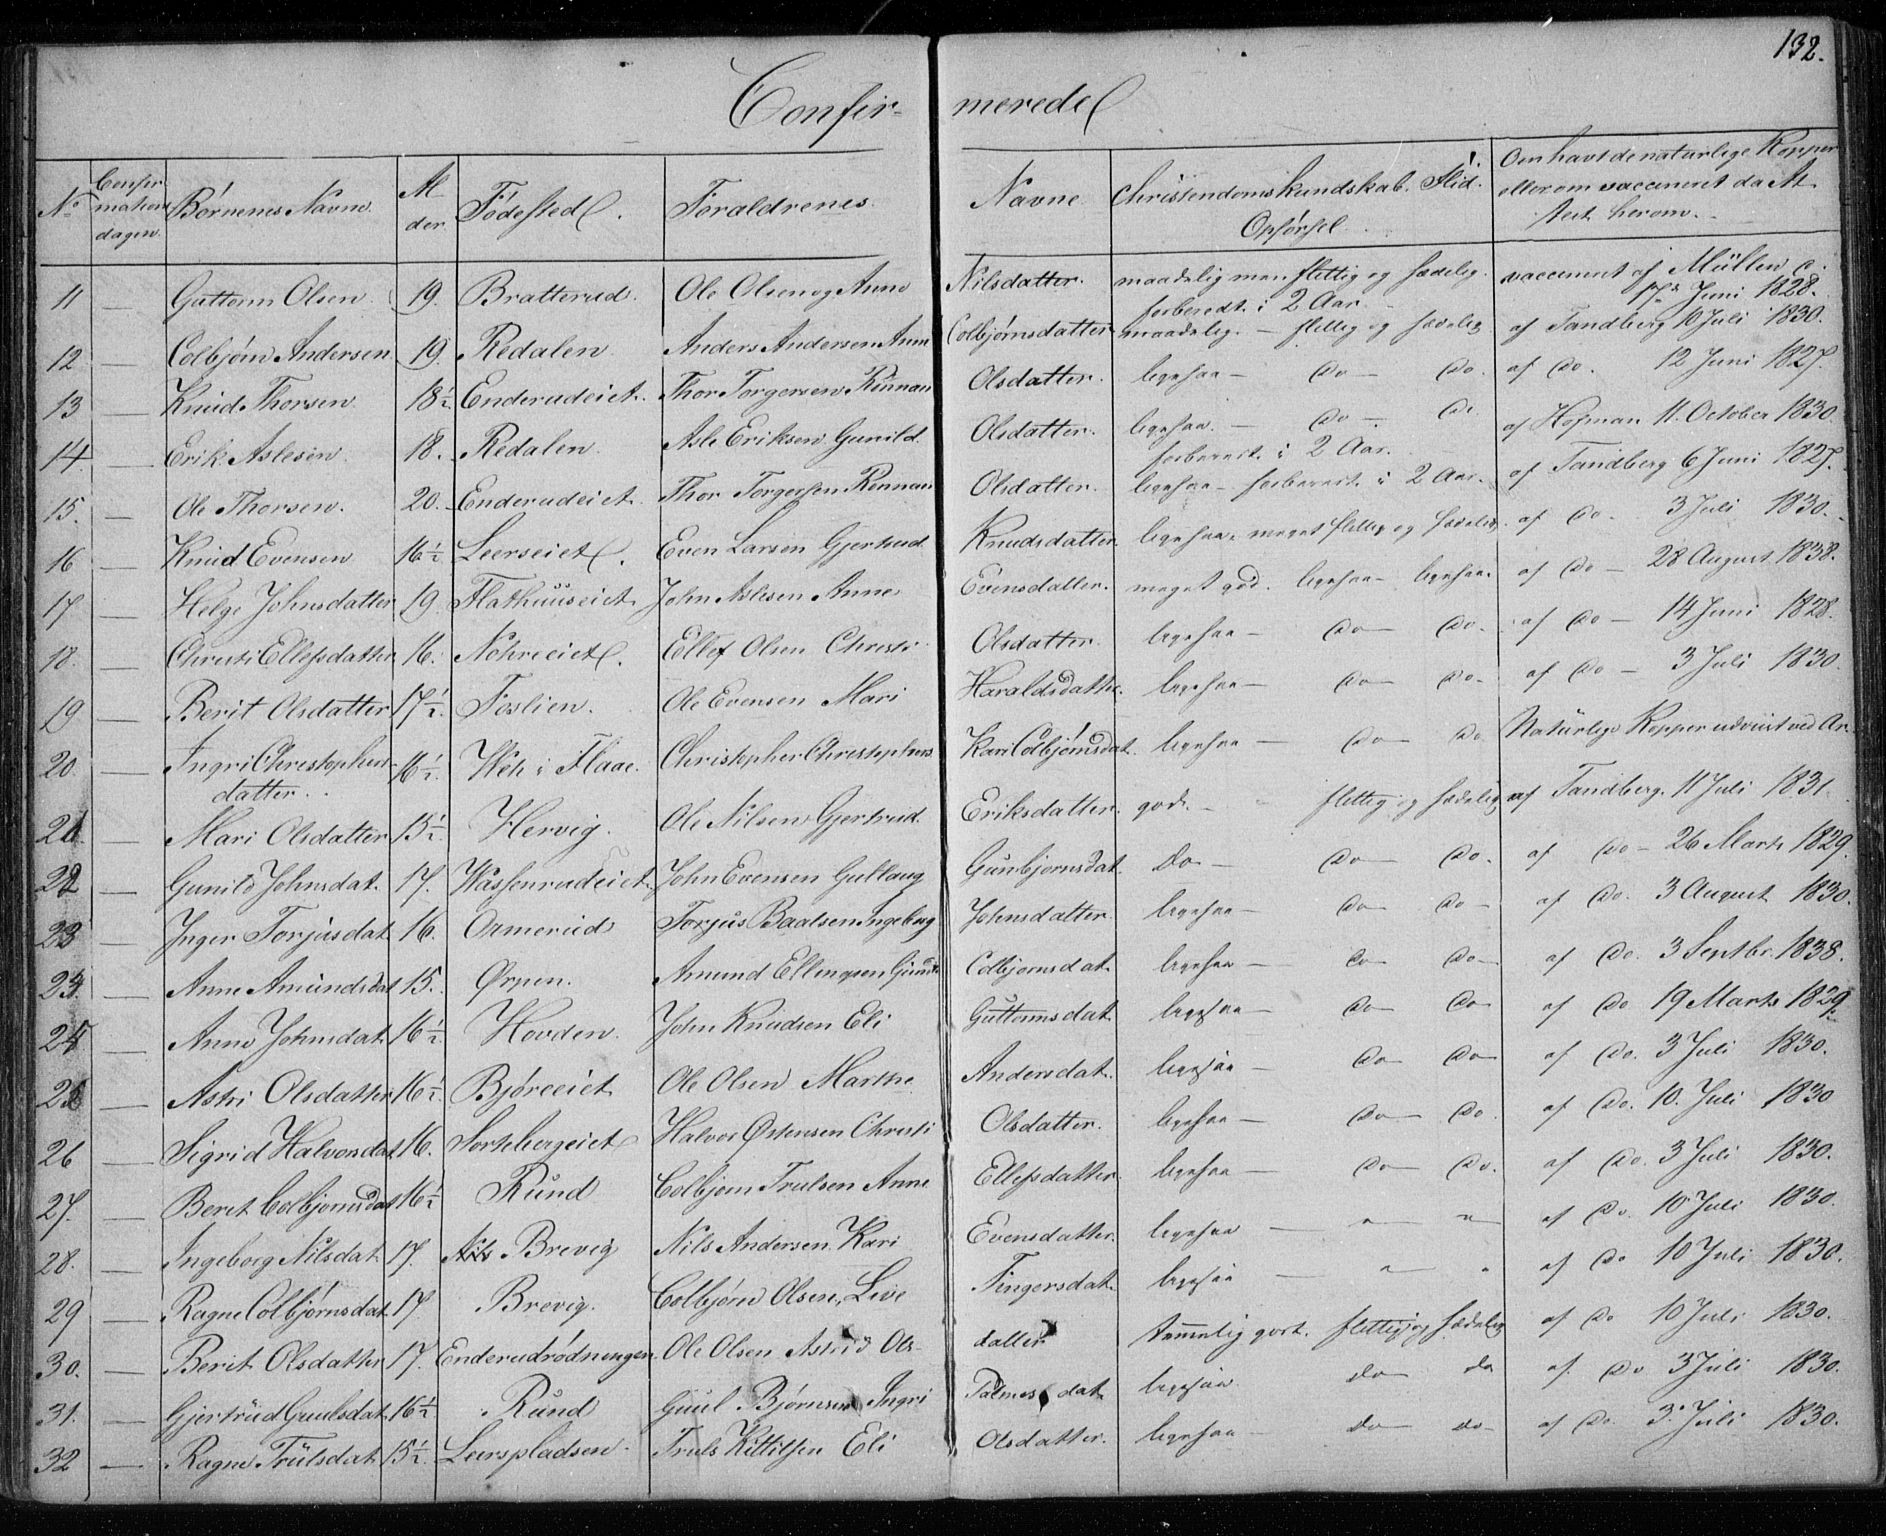 132.
Confir- merede
No Confirmations dagen. Børnenes Navne. Alder Fødested. Foraldrenes Navne Christendomskundskab. Flid. Opførsel Om havt de naturlige Kopper eller om vaccineret da Attest herom.
11 — Guttorm Olsen 19. Bratterud. Ole Olsen og Anne Nilsdatter. maadelig men flittig og sædelig. forberedt i 2 Aar. vaccineret af Müllen 17de Juni 1828.
12 — Colbjørn Andersen 19. Redalen Anders Andersen Anne Colbjørnsdatter maadelig. — flittig og sædelig af Tandberg 10 Juli 1830.
13 — Knud Thorsen 18½ Enderudeiet. Thor Torgersen Rønnau Olsdatter. ligesaa — do — do. af do. 12 Juni 1827.
14. — Erik Aslesen 18. Redalen. Asle Eriksen Gunild Olsdatter. ligesaa. — do — do forberedt. i 2 Aar. af Hofman 11. October 1830
15. — Ole Thorsen. 20. Enderudeiet. Thor Torgersen Rønnau Olsdatter. ligesaa — forberedt. i 2 Aar. af Tandberg 6 Juni 1827.
16 — Knud Evensen 16½ Leerseiet. Even Larsen Gjertrud Knudsdatter. ligesaa, meget flittig og sædelig. af do. 3 Juli 1830.
17 — Helge Johnsdatter 19 Flathuuseiet John Aslesen Anne Evensdatter. meget god. ligesaa — ligesaa. af do — 28 August 1838.
18. — Christi Ellefsdatter 16. Nohreeiet. Ellef Olsen Christi Olsdatter. ligesaa — do — do. af do — 14 Juni 1828.
19 — Berit Olsdatter 17½. Foslien. Ole Evensen Mari Haraldsdatter. ligesaa — do — do. af do — 3 Juli 1830.
20. — Ingri Christophers datter. 16½. Weh i Flaae. Christopher Christophers Kari Colbjørnsdat. ligesaa — do — do Naturlige Kopper udviist ved Ar.
21. — Mari Olsdatter 15½ Hervig. Ole Nilsen Gjertrud Eriksdatter. god. — flittig og sædelig af Tandberg. 11 Juli 1831
22 — Gunild Johnsdat. 17. Wassenrudeiet John Evensen Gullaug Gunbjornsdat. do — do — do. af do — 26 Marts 1829.
23 — Inger Torjusdat 16. Ormerud Torjus Baalsen Ingeborg Johnsdatter ligesaa — do — do — af do. 3 August 1830.
24. — Anne Amundsdat 15. Ørpen. Amund Ellingsen Colbjornsdat. ligesaa — do — do — af do. 3 Septbr. 1838.
25 — Anne Johnsdat. 16½. Hovden. John Knudsen Eli Guttormsdat ligesaa — do — do af do 19 Marts 1829.
— Astri Olsdatter 16½. Bjøreeiet Ole Olsen Marthe Andersdat. ligesaa — do — do — af do. 3 Juli 1830.
26 — Sigrid Halvorsdat 16. Sortebergeiet Halvor Østensen Christi Olsdatter. ligesaa — do — do. af do. 10. Juli 1830
27. — Berit Colbjørnsdat 16½ Rund Colbjørn Trulsen Anne Ellefsdatter. ligesaa — do — do. af do. 3 Juli 1830.
28. — Ingeborg Nilsdat. 17. Brevig Nils Andersen Kari Evensdatter. ligesaa — " — " — af do. 10 Juli 1830.
29 — Ragne Colbjørnsdat 17 Brevig. Colbjørn Olsen, Live Fingersdat. ligesaa — " — " af do 10 Juli 1830.
30. — Berit Olsdatter 17. Enderudrødningen. Ole Olsen Astrid Ols- datter temmelig godt. flittig og sædelig af do 10 Juli 1830.
31. — Gjertrud Guulsdat. 16½ Rund Guul Bjørnsen Ingri Palmesdat ligesaa do — do af. do 3 Juli 1830.
32 — Ragne Trulsdat 15½. Leerspladsen. Truls Kittilsen Eli Olsdatter. ligesaa — do — do — af do. 3. Juli 1830.